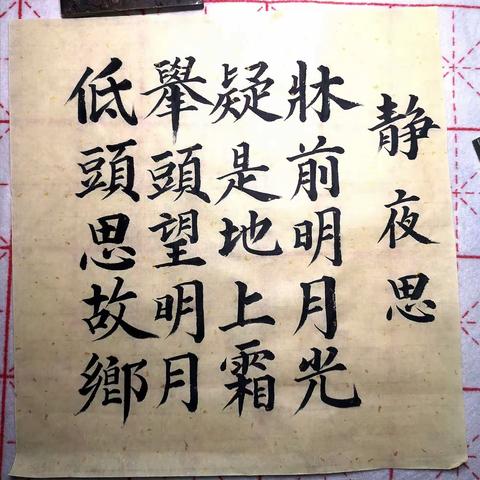 静夜思
牀前明月光
疑是地上霜
舉頭望明月
低頭思故鄉